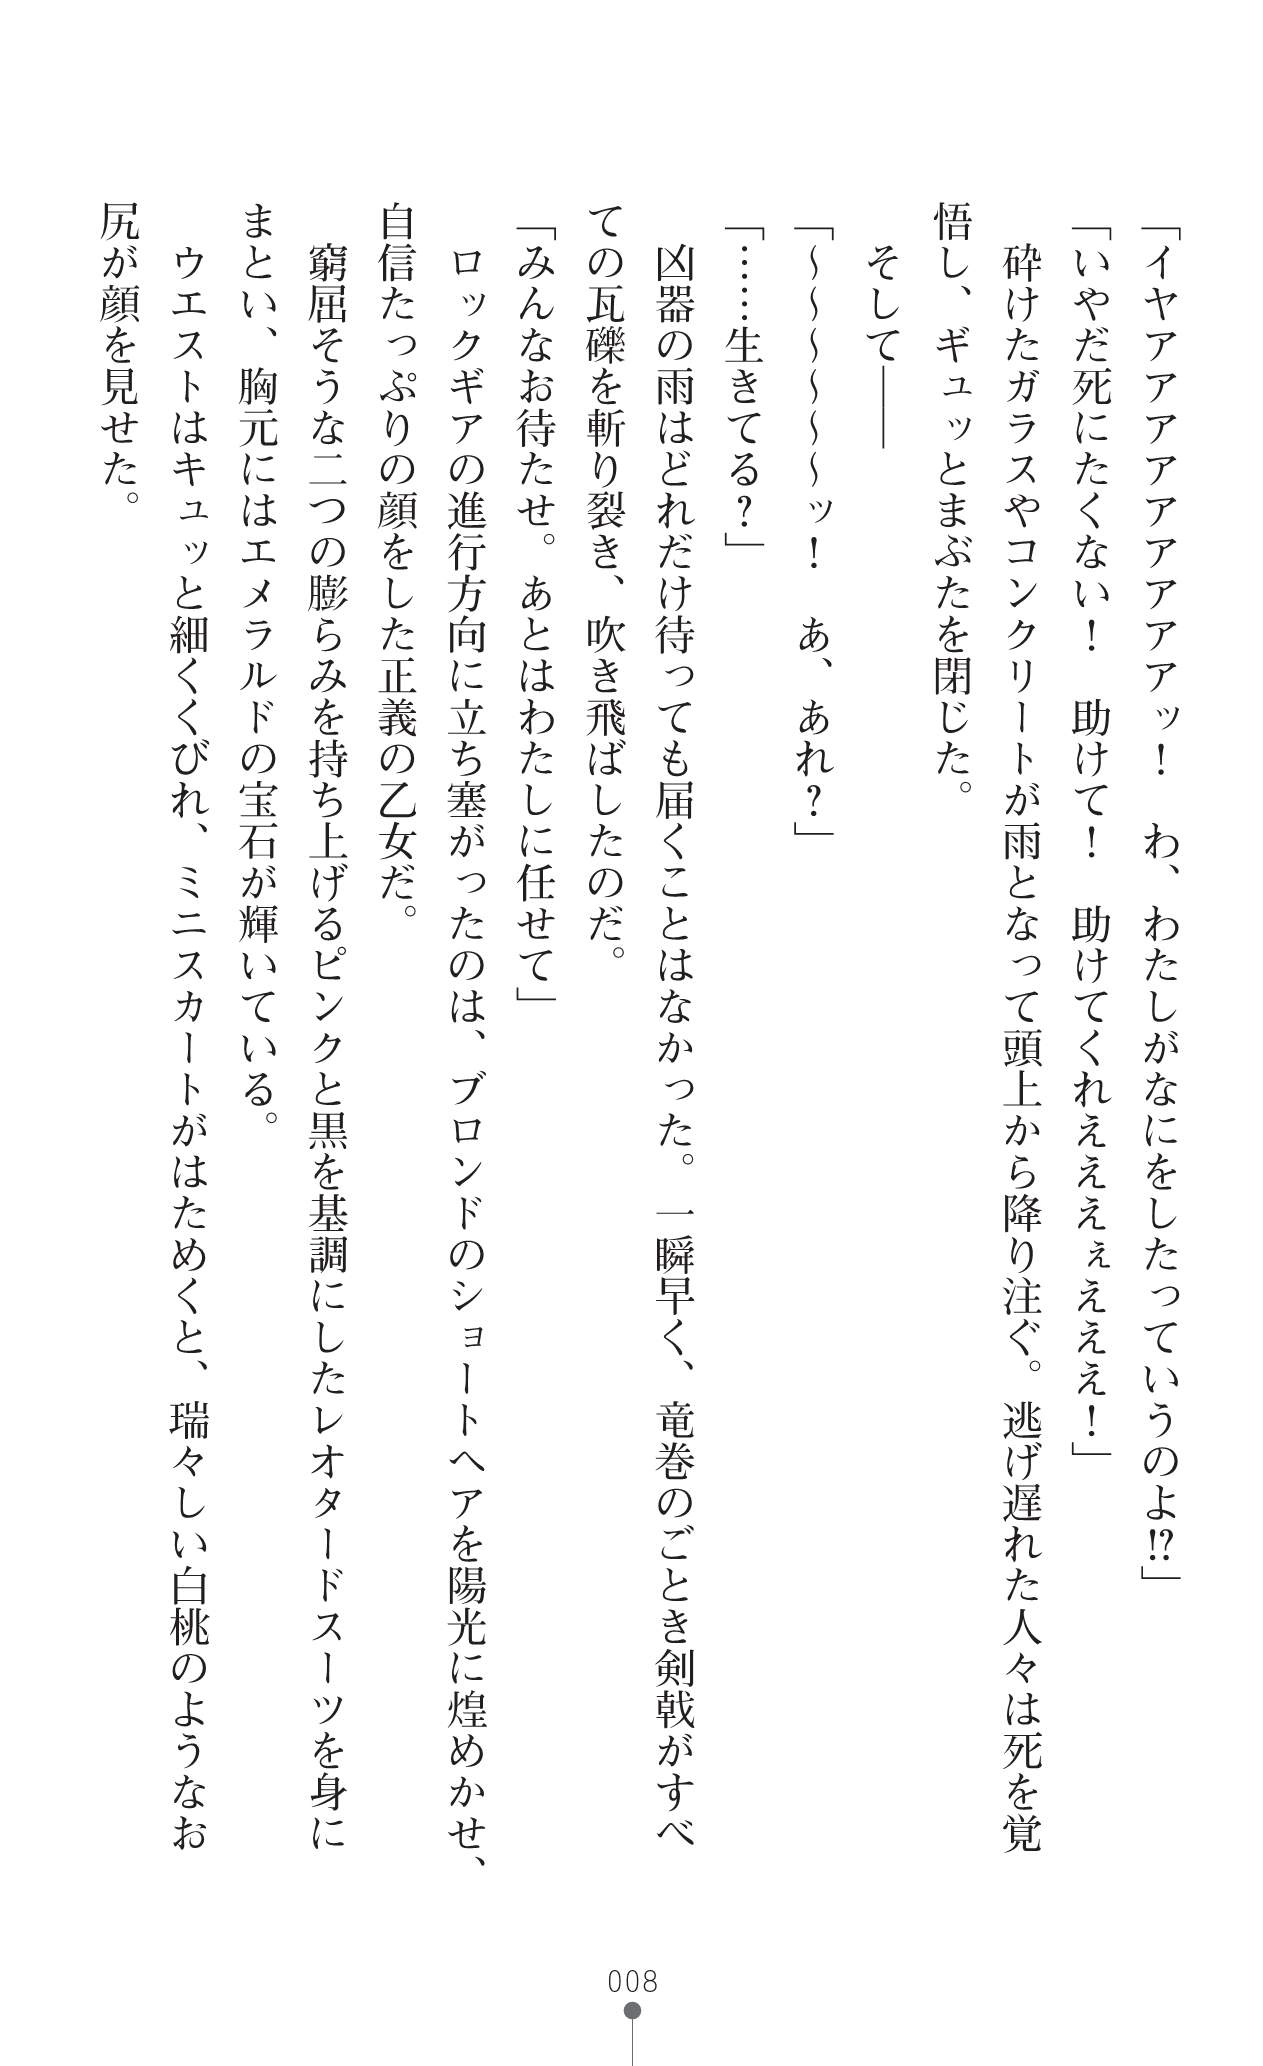 「イヤアアアアアアアアアッ！　わ、わたしがなにをしたっていうのよ!?」
「いやだ死にたくない！　助けて！　助けてくれえええぇえええ！」
　砕けたガラスやコンクリートが雨となって頭上から降り注ぐ。逃げ遅れた人々は死を覚
悟し、ギュッとまぶたを閉じた。
　そして――
「～～～～～～ッ！　あ、あれ？」
「……生きてる？」
　凶器の雨はどれだけ待っても届くことはなかった。一瞬早く、竜巻のごとき剣戟がすべ
ての瓦礫を斬り裂き、吹き飛ばしたのだ。
「みんなお待たせ。あとはわたしに任せて」
　ロックギアの進行方向に立ち塞がったのは、ブロンドのショートヘアを陽光に煌めかせ、
自信たっぷりの顔をした正義の乙女だ。
　窮屈そうな二つの膨らみを持ち上げるピンクと黒を基調にしたレオタードスーツを身に
まとい、胸元にはエメラルドの宝石が輝いている。
　ウエストはキュッと細くくびれ、ミニスカートがはためくと、瑞々しい白桃のようなお
尻が顔を見せた。
008